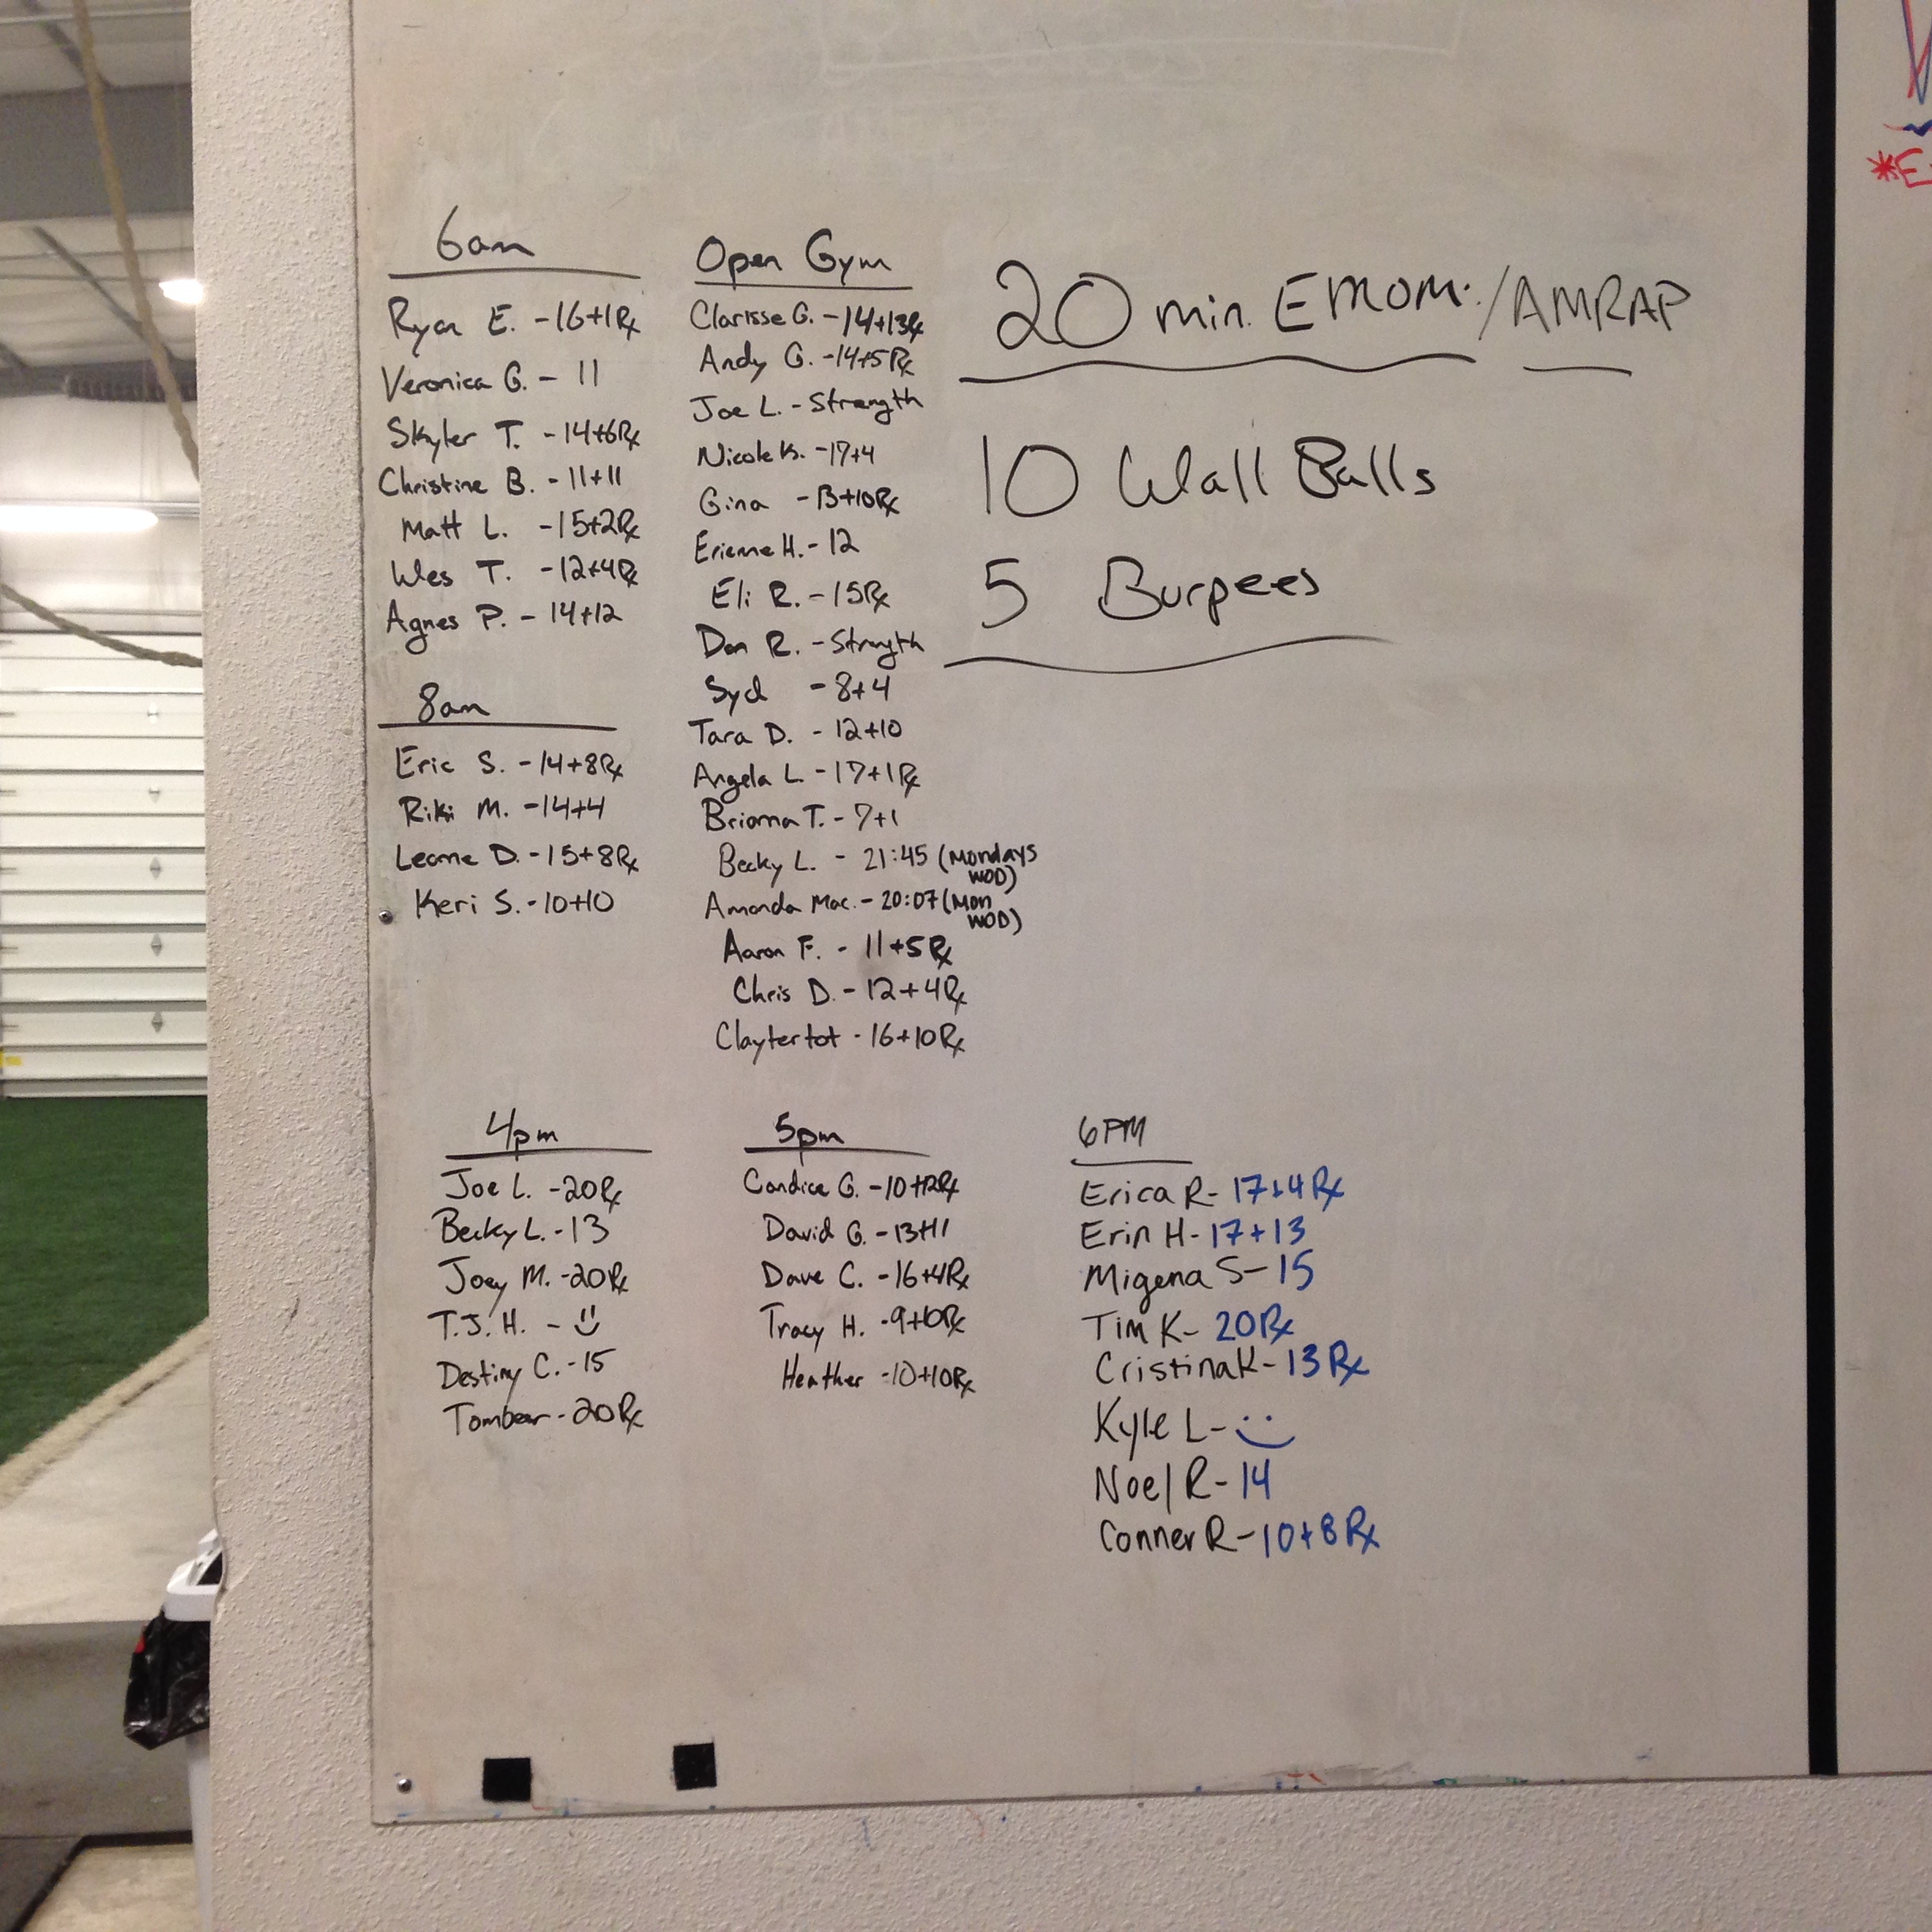 6am
Ryan E. - 16+1Rx
Veronica G. - 11
Skyler T. - 14+6Rx
Christine B. - 11+11
Matt L. - 15+2Rx
Wes T. - 12+4Rx
Agnes P. - 14+12
8am
Eric S. - 14+8Rx
Riki M. - 14+4
Leanne D. - 15+8Rx
Keri S. - 10+10
Open Gym
Clarisse G. - 14+13Rx
Andy G. - 14+5Rx
Joe L. - Strength
Nicole K. - 17+4
Gina - 13+10Rx
Erienne H. - 12
Eli R. - 15Rx
Dan R. - Strength
Syd - 8+4
Tara D. - 12+10
Angela L - 17+1Rx
Brianna T. - 7+1
Becky L. - 21:45 (Mondays
WOD)
Amanda Mac. - 20:07 (Mon
WOD)
Aaron F. - 11+5Rx
Chris D. - 12+4Rx
Claytertot - 16+10Rx
20 min. EMOM. / AMRAP
10 Wall Balls
5 Burpees
4pm
Joe L. - 20Rx
Becky L. - 13
Joey M. - 20Rx
T.J. H. -
Destiny C. - 15
Tombear - 20Rx
5pm
Candice G. - 10+12Rx
David G. - 13+11
Dave C. - 16+4Rx
Tracy H. - 9+10Rx
Heather - 10+10Rx
6PM
Erica R - 17+4Rx
Erin H - 17+13
Migena S - 15
Tim K - 20Rx
Cristina K - 13Rx
Kyle L -
Noel R - 14
Conner R - 10+8Rx